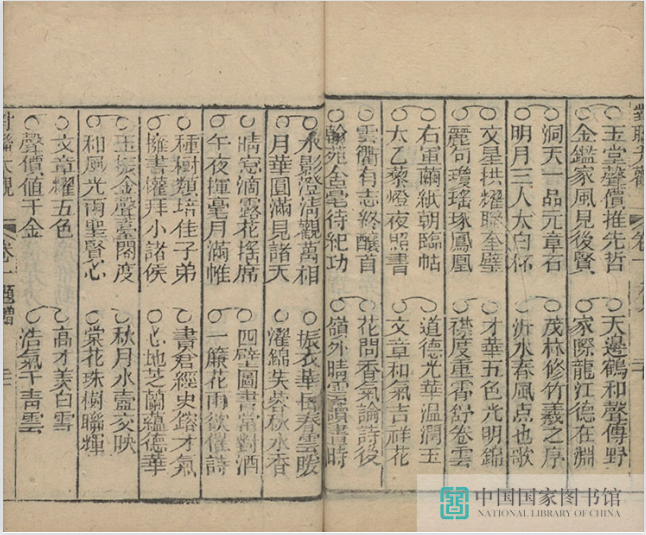 對聯大觀 卷一
玉堂聲價推先哲 天邊鶴和聲傳野
金鑑家風見後賢 家際龍江德在淵
洞天一品元章石 茂林修竹羲之序
明月三人太白杯 沂水春風點也歌
文星拱耀聯奎璧 才華五色光明錦
麗句瓊瑤琢鳳凰 襟度重霄舒卷雲
右軍繭紙朝臨帖 道德光華溫潤玉
太乙藜燈夜照書 文章和氣吉祥花
雲衢有志終釀首 花問香氣論詩後
翰苑金毫待紀功 嶺外晴雲讀書時
水影澄清觀萬相 振衣華 春雲暖
月華圓滿見諸天 濯錦 秋水香
晴窓滴露花搖席 四壁圖書當對酒
午夜揮毫月滿帷 一簾花雨欲催詩
種樹類培佳子弟 書倉經史鎔才氣
擁書權拜小諸侯 心地芝蘭蘊德華
玉振金聲臺閣度 秋月水壺交映
和風光雨聖賢心 棠花珠樹聯輝
文章耀五色 高才美白雪
聲價值千金 浩氣干青雲
對聯大觀 卷一 題贈
中国国家图书馆
NATIONAL LIBRARY OF CHINA